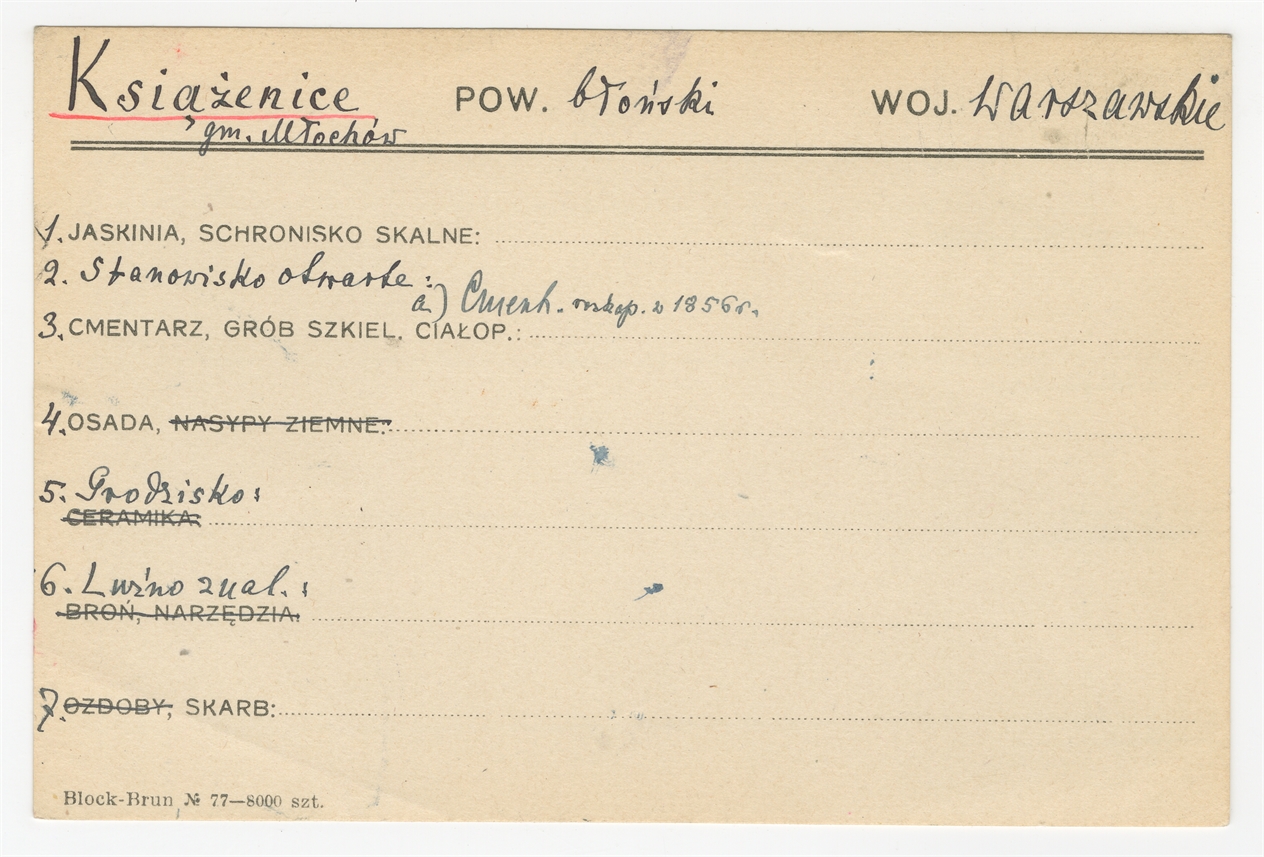 Książenice POW. błoński WOJ. Warszawskie
gm. Młochów
1. JASKINIA, SCHRONISKO SKALNE:
2. Stanowisko otwarte:
a) Cment. rozkop. w 1856 r.
3. CMENTARZ, GRÓB SZKIEL. CIAŁOP.:
4. OSADA, NASYPY ZIEMNE:
5. Grodzisko:
CERAMIKA:
6. Luźno znal.:
BROŃ, NARZĘDZIA:
7. OZDOBY, SKARB:
Block-Brun № 77—8000 szt.